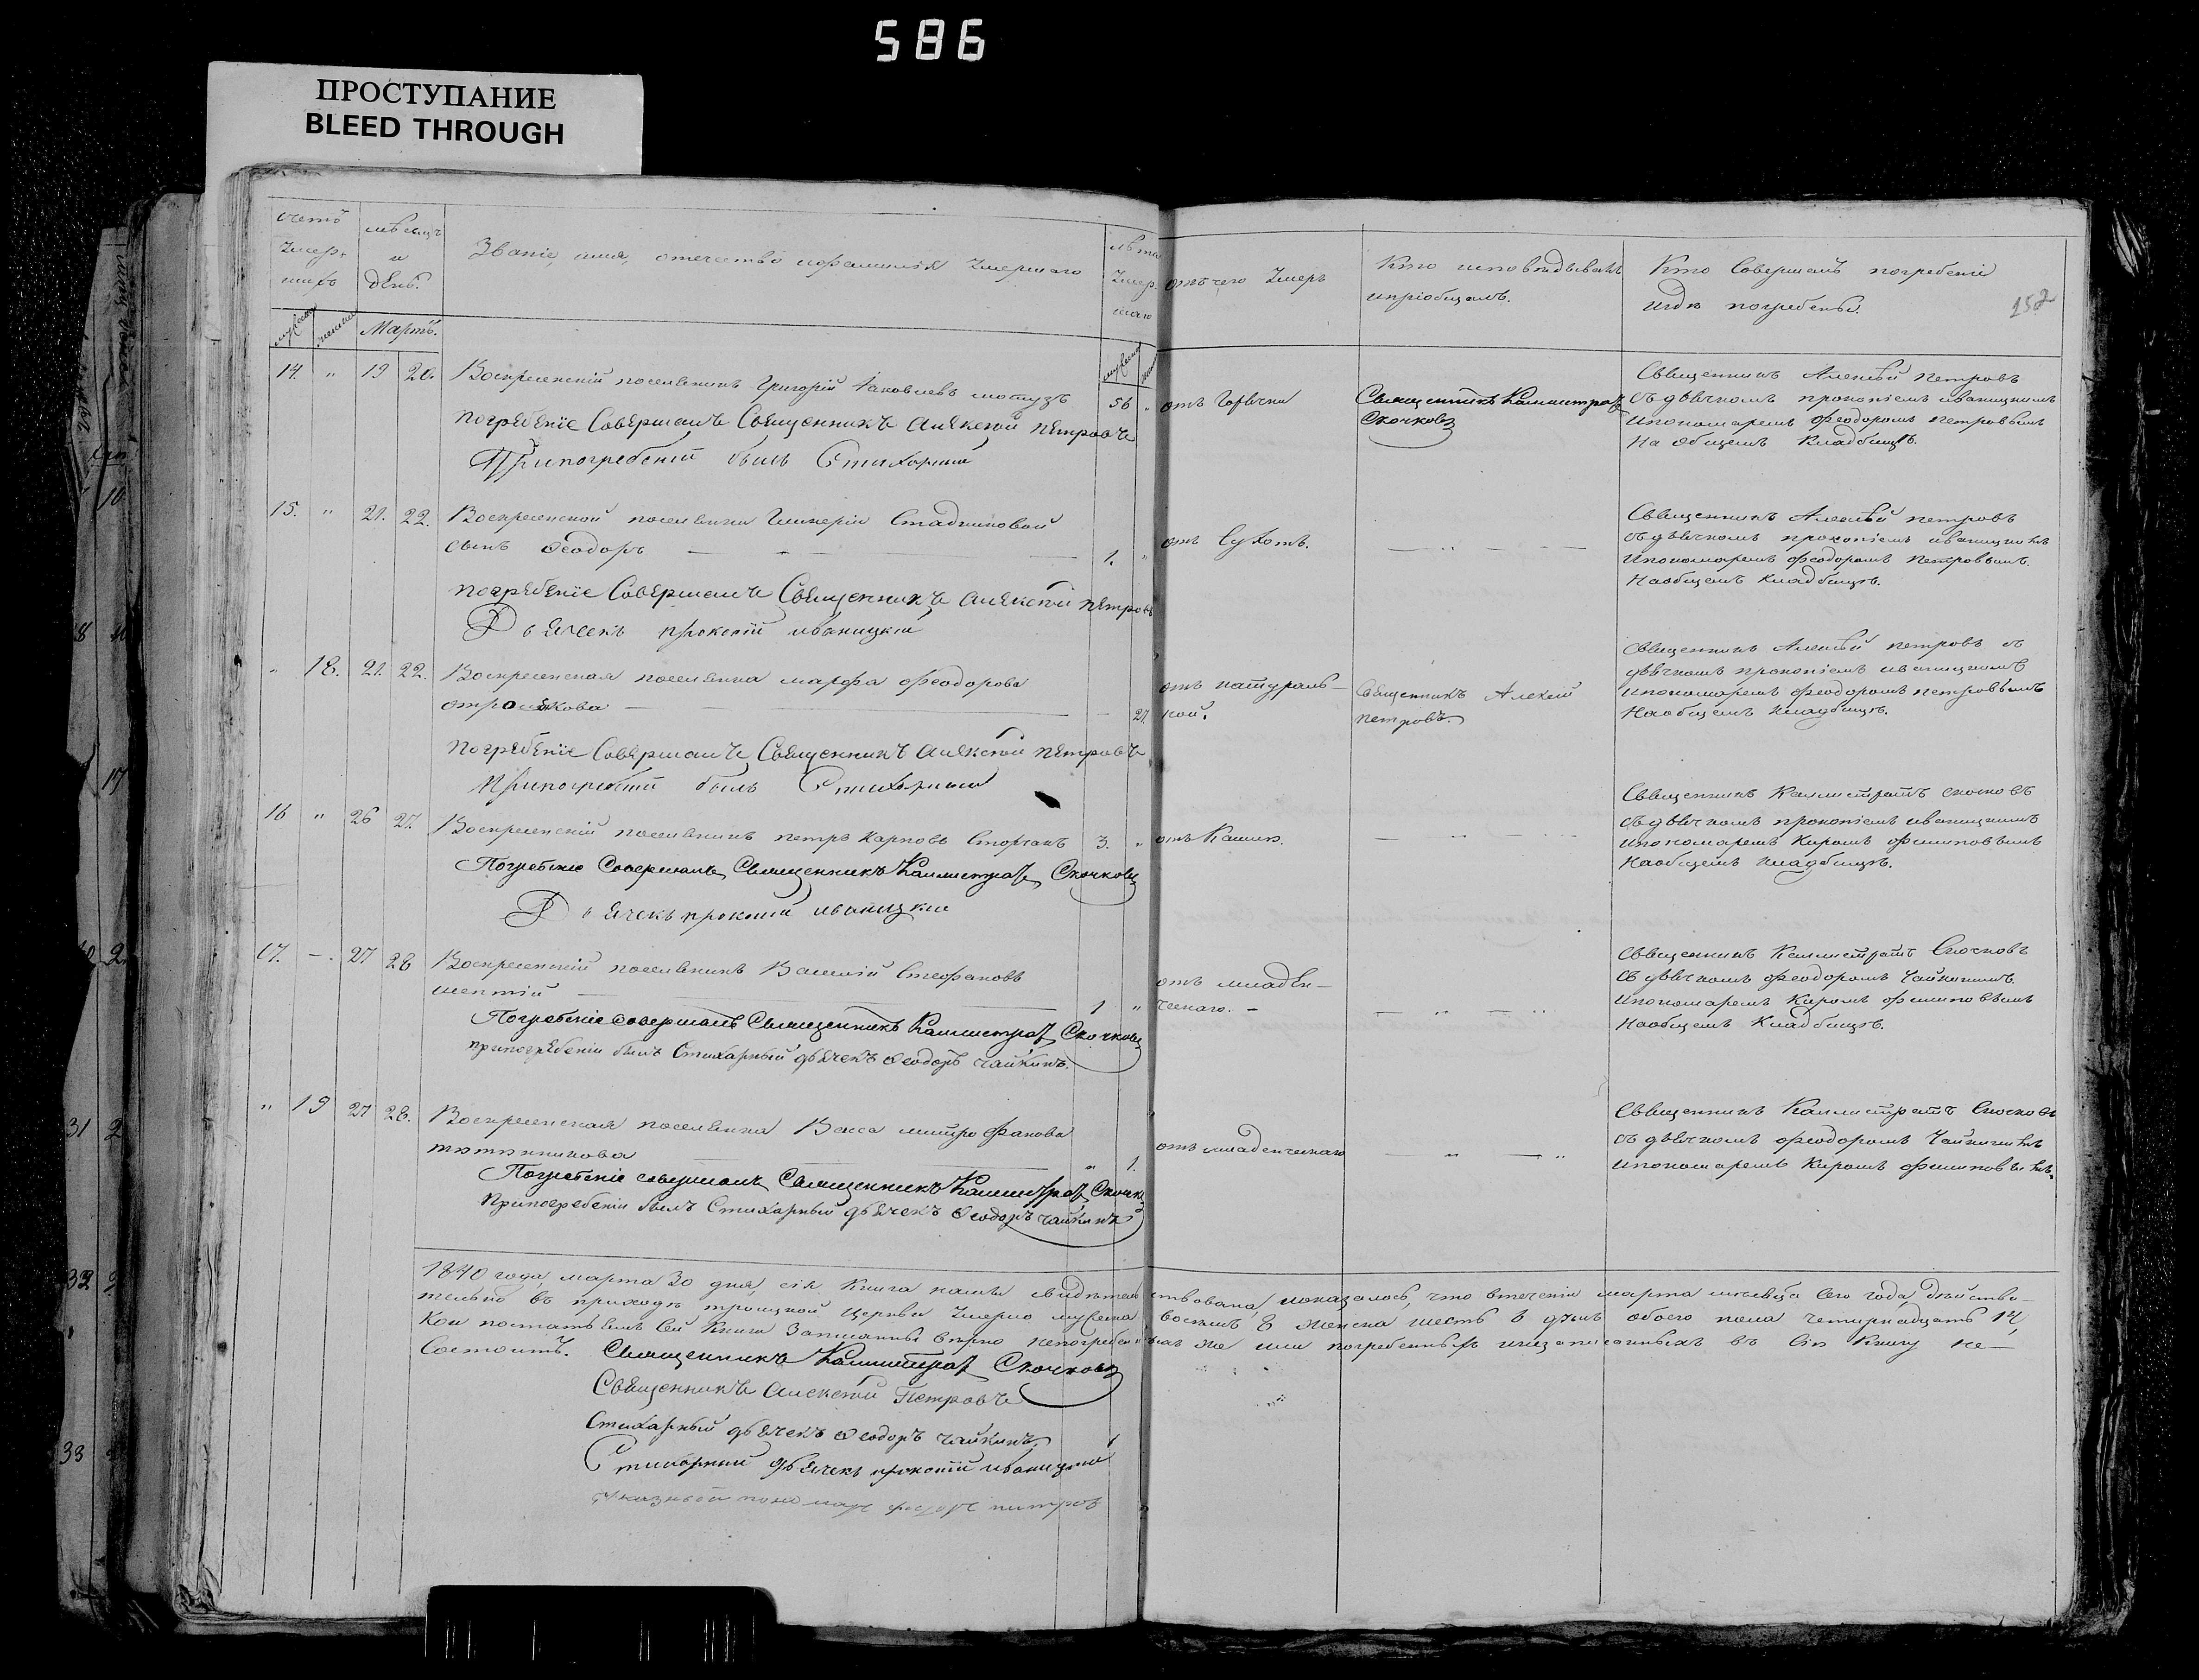 586
ПРОСТУПАНИЕ
BLEED THROUGH
счетъ умер-шихъ
мѣсяцъ и день.
Званіе, имя, отчество и фамилія умершаго
лѣта умер-шаго
отъ чего умеръ
Кто исповѣдывалъ
и пріобщалъ.
Кто совершалъ погребеніе
и гдѣ погребены.
152
Мартъ.
14. " 19 20. Воскресенскій поселянинъ Григорій Іаковлевъ мотузъ 56 "
Погребеніе Совершалъ Священникъ Алексѣй Петровъ
При погребеніи былъ Стихарный
отъ горячки
Священникъ Каллистратъ
Скочковъ
Священникъ Алексѣй Петровъ
съ дьячкомъ прокопіемъ иваницкимъ
и пономаремъ Феодоромъ Петровымъ
На общемъ Кладбищѣ.
15. " 21. 22. Воскресенской поселянки Гликеріи Стадниковой
сынъ Ѳеодоръ 1. "
погребеніе Совершалъ Священникъ Алексѣй Петровъ
Дьячекъ прокопій иваницкій
отъ Сухотъ.
Священникъ Алексѣй петровъ
съ дьячкомъ прокопіемъ иваницкимъ
и пономаремъ феодоромъ Петровымъ.
На общемъ Кладбищѣ.
" 18. 21. 22. Воскресенская поселянка марфа Феодорова
21.
Погребеніе Совершалъ Священникъ Алексѣй Петровъ
При погребеніи былъ Стихарный
отъ натураль-
ной.
Священникъ Алексѣй
петровъ.
Священникъ Алексѣй петровъ съ
дьячкомъ прокопіемъ иваницкимъ
и пономаремъ феодоромъ петровымъ
На общемъ кладбищѣ.
16 " 26 27. Воскресенскій поселянинъ петръ Карповъ 3. "
Погребеніе Совершалъ Священникъ Каллистратъ Скочковъ
Дьячекъ прокопій иваницкій
отъ Кашля.
Священникъ Каллистратъ скочковъ
съ дьячкомъ прокопіемъ иваницкимъ
и пономаремъ Киромъ филиповымъ
На общемъ кладбищѣ.
17. 27 28 Воскресенскій поселянинъ Василій Стефановъ
шептій 1 "
Погребеніе совершалъ Священникъ Каллистратъ Скочковъ
при погребеніи былъ Стихарный дьячекъ Ѳеодоръ Чайкинъ.
отъ младен-
ческаго.
Священникъ Каллистратъ Скочковъ
съ дьячкомъ феодоромъ Чайкинымъ
и пономаремъ Киромъ филиповымъ
На общемъ Кладбищѣ.
" 19 27 28. Воскресенская поселянка Васса митрофанова
" 1.
Погребеніе совершалъ Священникъ Каллистратъ Скочковъ
При погребеніи былъ Стихарный дьячекъ Ѳеодоръ Чайкинъ
отъ младенческаго
Священникъ Каллистратъ Скочковъ
съ дьячкомъ феодоромъ Чайкинымъ
и пономаремъ Киромъ филиповымъ.
1840 года, марта 30 дня, сія Книга нами свидѣтельствована, и оказалось, что втеченіи марта мѣсяца сего года, дѣйстви-
тельно въ приходѣ троицкой Церкви Умерло мужеска восемь 8 женска шесть 6 душъ обоего пола четырнадцать 14,
Кои по статьямъ сей Книги Записанны вѣрно непогребенныхъ же или погребенныхъ и незаписанныхъ въ сію Книгу не-
состоитъ. Священникъ Каллистратъ Скочковъ
Священникъ Алексѣй Петровъ
Стихарный дьячекъ Ѳеодоръ Чайкинъ,
Стихарный дьячекъ прокопій иваницкій
Указный пономарь федоръ петров